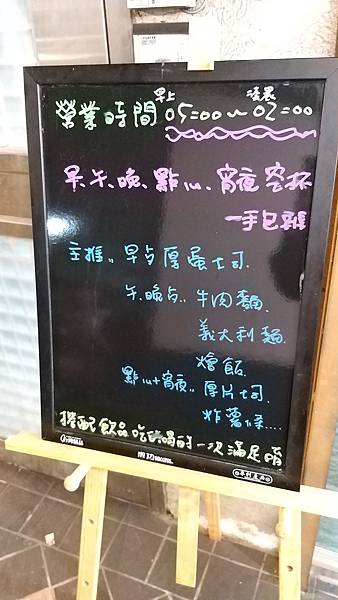 早上 凌晨
營業時間 05=00~02=00
早、午、晚、點心、宵夜空杯
一手包辦
主推.. 早台厚蛋土司.
午、晚台.. 牛肉麵.
義大利麵.
燴飯.
點心+宵夜.. 厚片土司.
炸薯條....
搭配飲品吃的喝的一次滿足唷